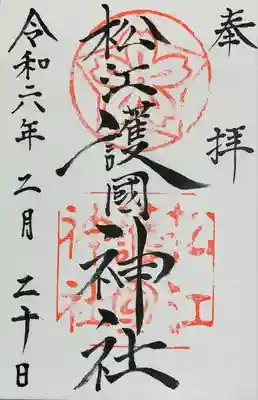 奉拝
松江護國神社
令和六年二月二十日
松江
神社